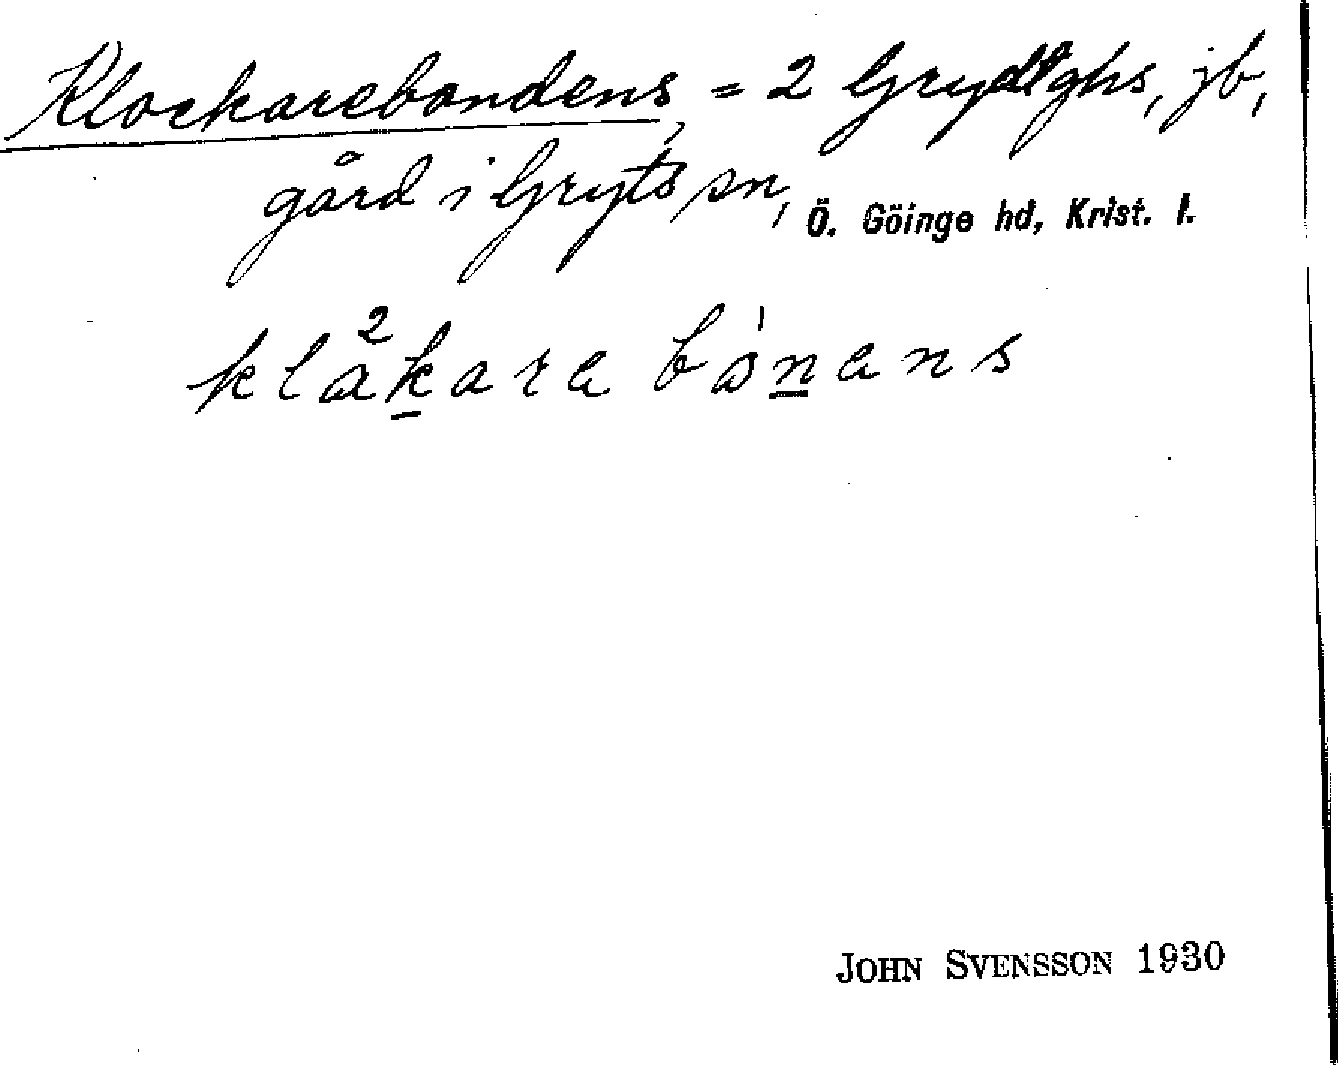 Klockarebondens, = 2 Grydtghs, jb,
gård i Gryts sn, Ö. Göinge hd, Krist. l.
klå²kara bónans
JOHN SVENSSON 1930